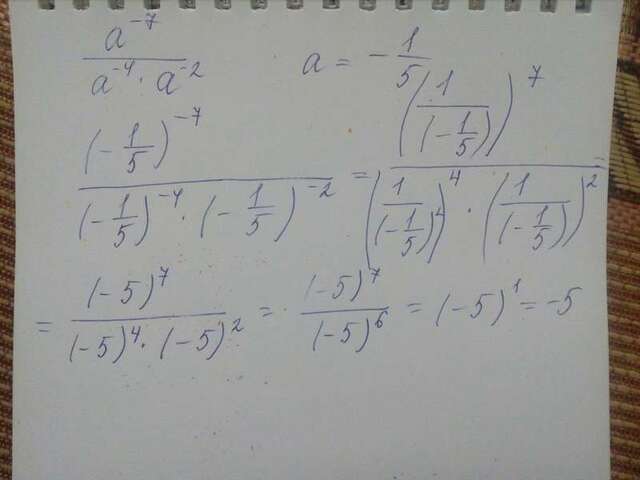 a⁻⁷ / (a⁻⁴ · a⁻²)    a = -1/5
(-1/5)⁻⁷ / ((-1/5)⁻⁴ · (-1/5)⁻²) = (1/(-1/5))⁷ / ((1/(-1/5))⁴ · (1/(-1/5))²) =
= (-5)⁷ / ((-5)⁴ · (-5)²) = (-5)⁷ / (-5)⁶ = (-5)¹ = -5